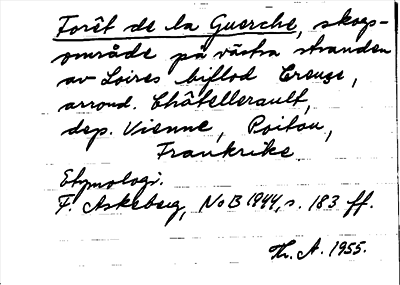 Forêt de la Guerche, skogs-
område på västra stranden
av Loires biflod Creuze,
arrond. Châtellerault,
dep. Vienne, Poitou,
Frankrike
Etymologi.
F. Askeberg, NoB 1944, s. 183 ff.
Th. A. 1955.